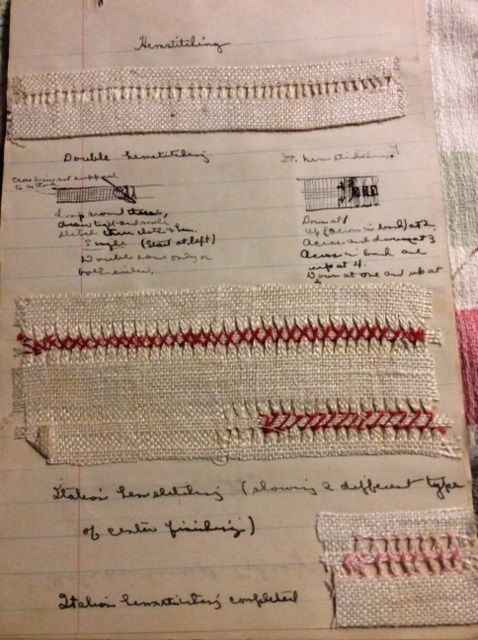 Hemstitching
Double hemstitching
It. hemstitching
Cross
to
loop around thread,
draw tight and make
Single (Start at left)
Double row only on
Down at 1
Up (across in back) at 2
Across and down at 3
Across in back and
up at 4.
Down at one and up at
Italian hemstitching (showing 2 different type
of center finishing)
Italian hemstitching completed